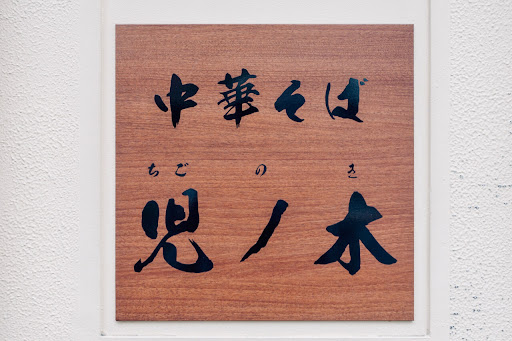 中華そば
ちごのき
児ノ木